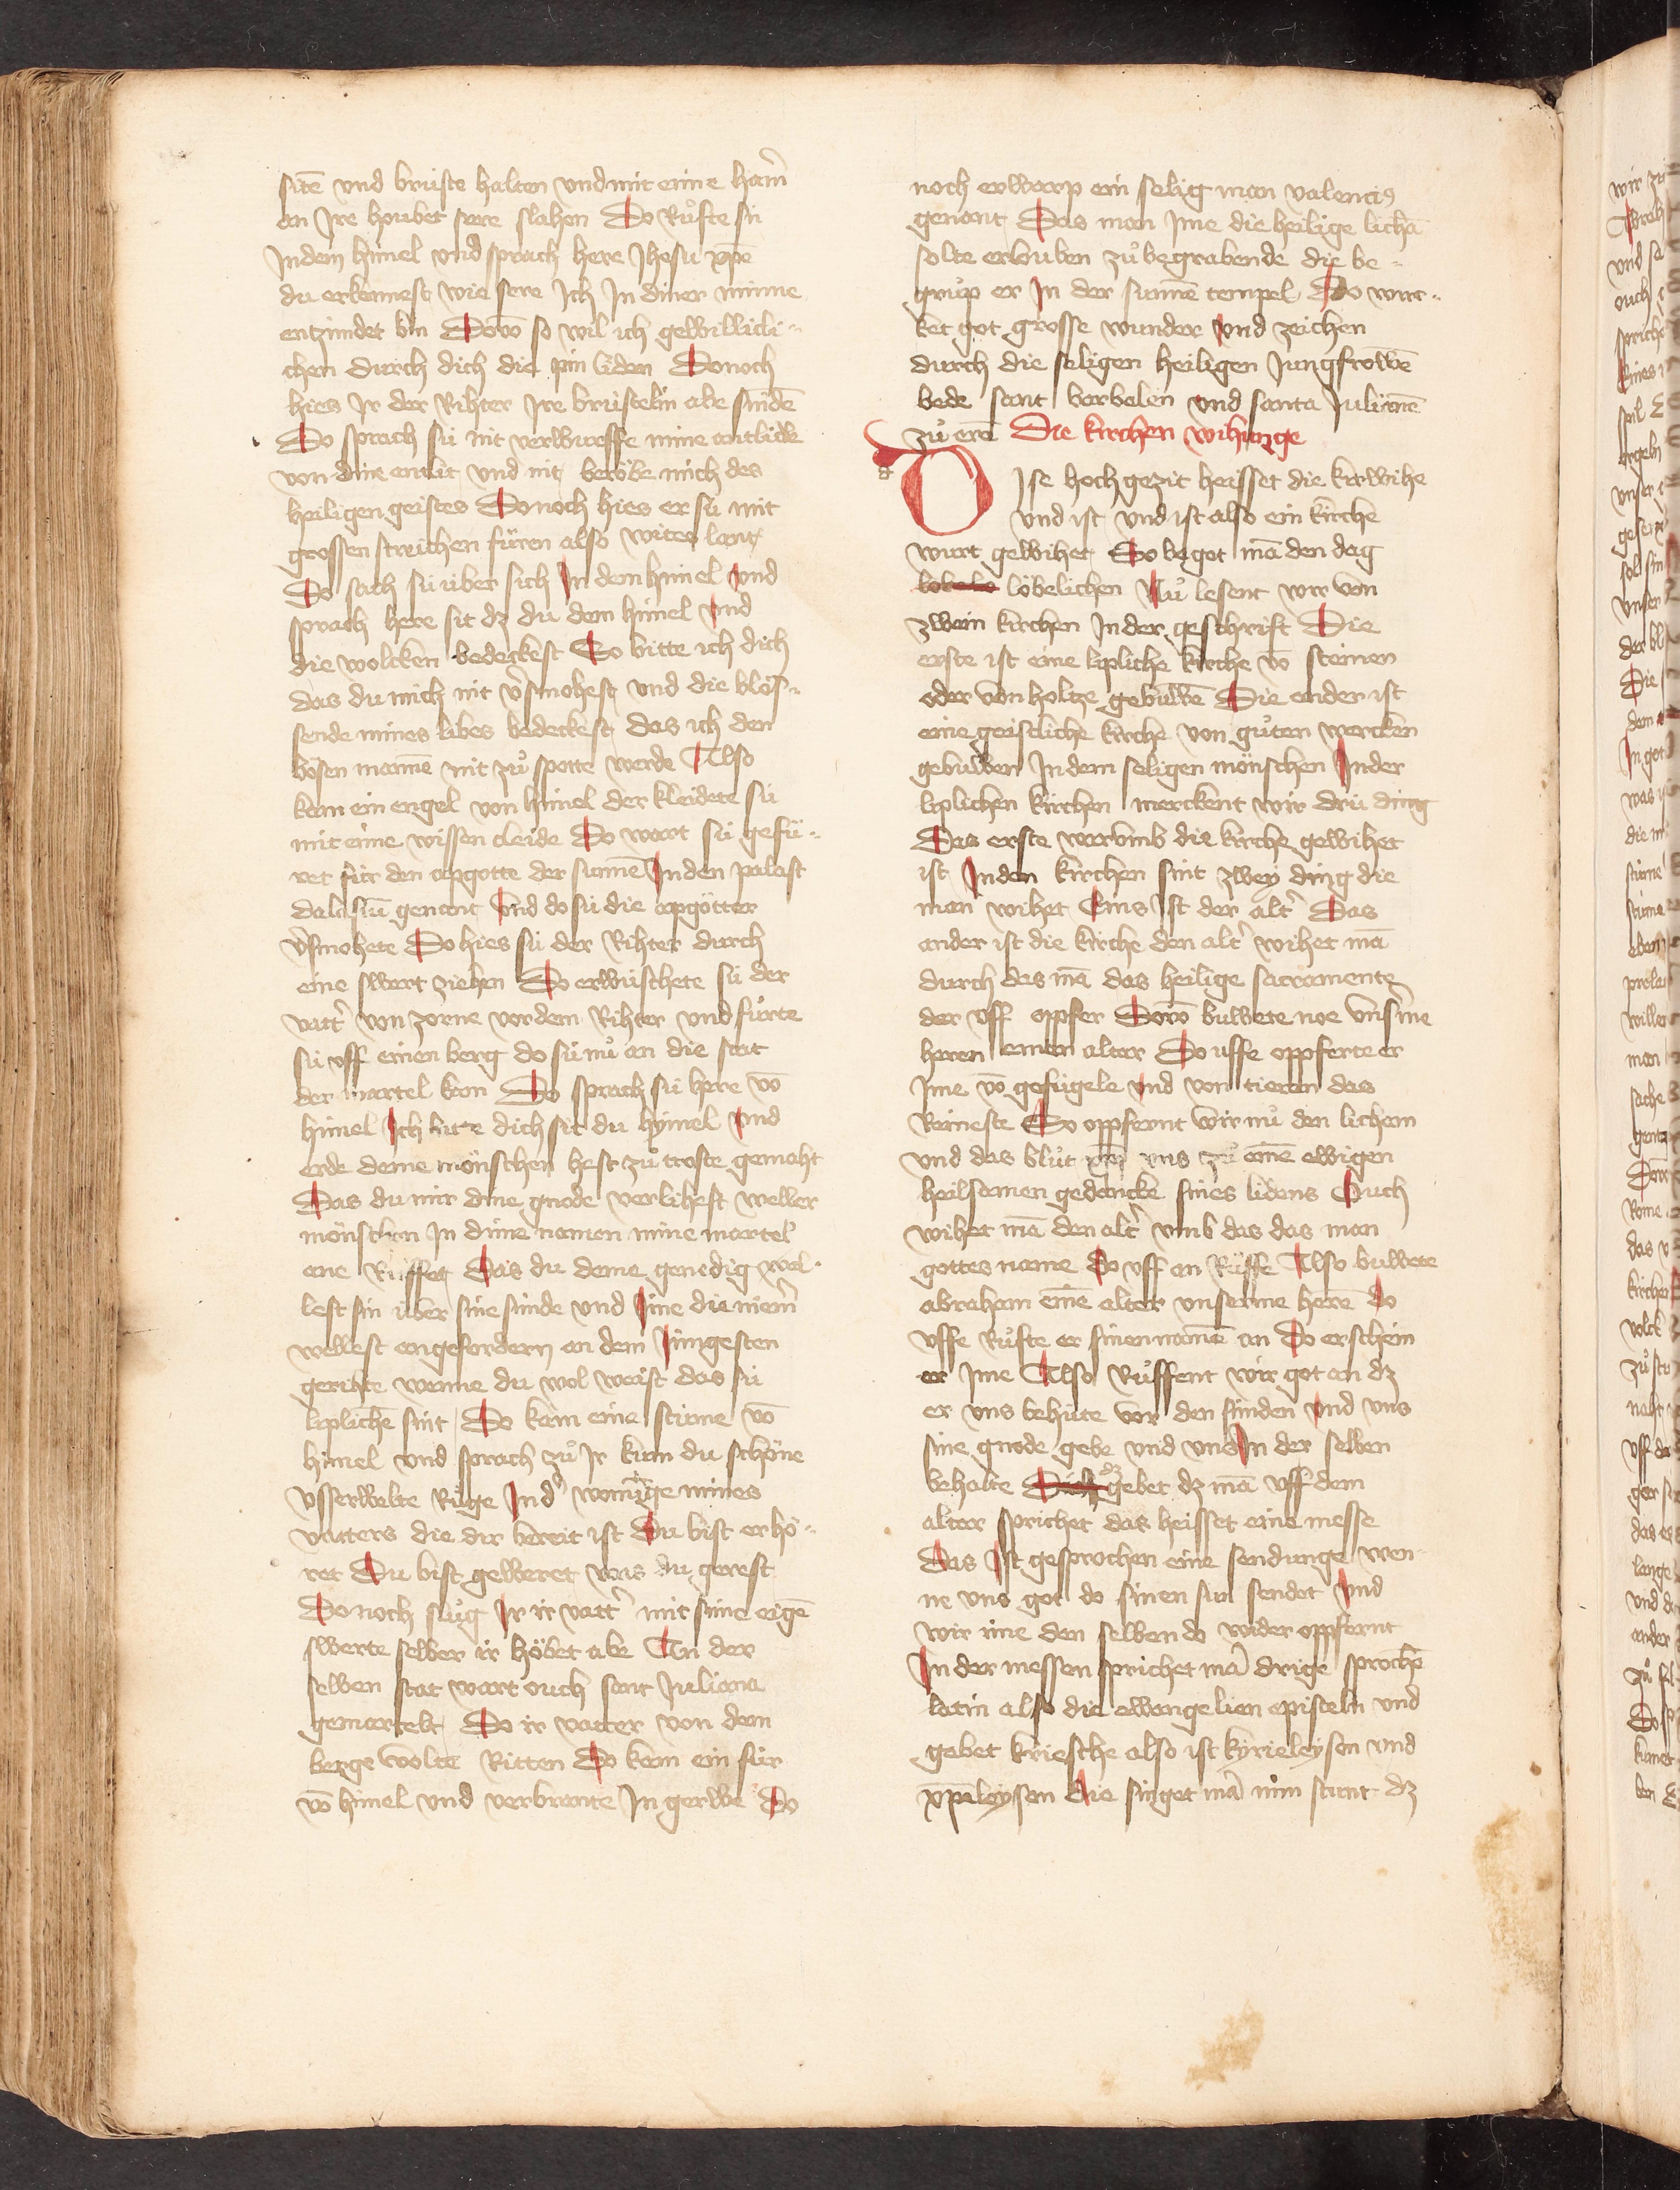 sitē vnd bruͤste halten vnd mit eime ham̄
an Ire houbet sere slahen Do Ruͦfte sú
In dem himel vnd sprach here Jhesu xp̄e
du erkennest wie sere Ich In diner minne
entzúndet bin Dovō so wil ich gewillicli-
chen durch dich die pin liden Donoch
hies Ir der Rihter Ire brústelin abe snidē
Do sprach sú nit verwurffe mine antlicke
von dime antlit vnd nit beroͤbe mich des
heiligen geistes Donoch hies er sú mit
grossen streichen fuͤren also wites lant
Do sach sú úber sich In dem himel vnd
sprach here sit dz du dem himel vnd
die wolcken bedeckest So bitte ich dich
das du mich nit v̓smohest vnd die bloͤs-
sende mines libes bedeckest das ich den
boͤsen mannē nit zuͦ spotte werde Also
kam ein engel von himel der kleidete sú
mit eime wissen cleide Do wart sú gefuͤ-
ret fúr den apgotte der sunnē In den palast
dalasiū genant Vnd do sú die apgoͤtter
v̓smohete Do hies sú der Rihter durch
eine swert ziehen Do erwuschete sú der
vatt̓ von zorne vor dem Rihter vnd fuͦrte
sú vff einen berg do sú nuͦ an die stat
der martel kam Do sprach sú here vō
himel Ich bitte dich sit du hymel vnd
erde deme moͤnschen hest zuͦ troste gemaht
Das du mir dine gnode verlihest weller
moͤnschen In dime namen mine martel
ane Ruͤffet Das du deme genedig wel-
lest sin úber sine súnde vnd Ime die niem̄
wellest angefordern an dem Iungesten
gerihte wenne du wol weist das sú
liplichē sint Do kam eine stime vō
himel vnd sprach zuͦ Ir kum du schoͤne
vsserwelte Ruͦge In d̓ wonunge mines
vatters die dir bereit ist Du bist erhoͤ-
ret Du bist geweret was du gerest
Donoch sluͦg Ir ir vatt̓ mit sime eigē
swerte selber ir hoͤbet abe An der
selben stat wart ouch sant Juliana
gemartelt Do ir vatter von dem
berge wolte Ritten Do kam ein fúr
vō himel vnd verbrante In gerwe Do
noch erwarp ein selig man valencis
genant Das man Ime die heilige lichā
solte erlouben zuͦ begrabende die be-
gruͦp er In der sunnē tempel Do wur-
ket got grosse wunder vnd zeichen
durch die seligen heiligen Iungfrowē
bede sant barbelen vnd santa Juliānē
zuͦ erē Die kirchen wihunge
d
Dise hochgezit heisset die kirwihe
vnd ist vnd ist also ein kirche
wurt gewihet So begot mā den dag
lobele loͤbelichen Nuͦ lesent wir von
zwein kirchen In der geschrift Die
erste ist eine lipliche kirche vō steinen
oder von holtze gebuwē Die ander ist
eine geistliche kirche von guͦten wercken
gebuwen In dem seligen moͤnschen In der
liplichen kirchen merckent wir drú ding
Das erste warvmb die kirche gewihet
ist In den kirchen sint zwey ding die
man wihet Eins Ist der alt̓ Das
ander ist die kirche den alt̓ wihet mā
durch das mā das heilige sacramente
der vff oppfer Dovō buwete noe vnserme
heren einen alter Do uffe oppferte er
Ime vō gefúgele vnd von tieren das
Reineste So oppfernt wir nuͦ den licham
vnd das bluͦt xp̄i vns zuͦ einē ewigen
heilsamen gedencke sines lidens Ouch
wihet mā den alt̓ vmb das das man
gottes name do vff an Ruͤffe Also buwete
abraham einē alter vnserme herē do
vffe Ruͦfte er sinen namē an Do erschein
er Ime Also Ruͤffent wir got an dz
er vns behuͤte vor den súnden vnd vns
sine gnode gebe vnd vns In der selben
behalte dz gebet dz mā vff dem
alter sprichet das heisset eine messe
Das Ist gesprochen eine sendunge wen-
ne vns got do sinen sun sendet vnd
wir ime den selben do wider oppfernt
In der messen sprichet mā drige sprochē
latin also die ewangelien episteln vnd
gebet kriesche also ist kyrieleyson vnd
xp̄eleyson die singet mā nún stunt dz